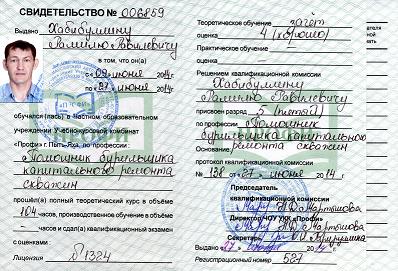 СВИДЕТЕЛЬСТВО № 006859
Выдано Хабибуллину
Рамилю Равилевичу
в том, что он(а)
с «09» июня 2014г
по «27» июня 2014г
обучался (лась) в Частном образовательном
учреждении Учебнокурсовой комбинат
«Профи» г. Пыть-Яха, по профессии:
Помощник бурильщика
капитального ремонта
скважин
прошёл(а) полный теоретический курс в объёме
104 часов, производственное обучение в объёме
— часов и сдал(а) квалификационный экзамен
с оценками
Лицензия 1324
Теоретическое обучение зачёт
оценка 4 (хорошо)
оценка
Решением квалификационной комиссии
Хабибуллину
Рамилю Равилевичу
присвоен разряд 5 (пятый)
по профессии «Помощник
бурильщика капитального
ремонта скважин
Основание
протокол квалификационной комиссии
№ 138 от «27» июня 2014 г.
Председатель
квалификационной комиссии
Директор ЧОУ УКК «Профи»
Секретарь
Выдано 27 2014г.
Регистрационный номер 587